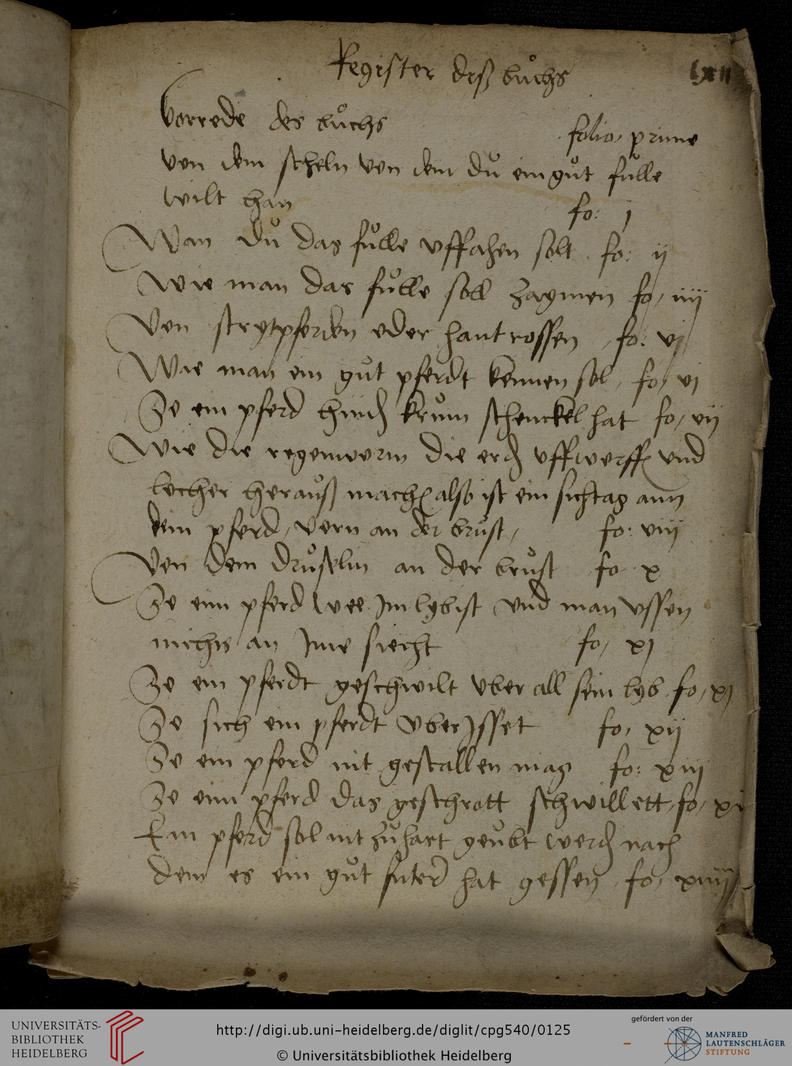 Register deß buͦchs
lxii
Vorrede des buͦchs folio prime
von dem scheln von dem du ein guͦt fuͤlle
wilt han fo: j
Wan du das fuͤlle uffahen solt fo: ij
Wie man das fuͤlle soll zaymen fo. iiij
Von strytpferden oder hantrossen, fo: vj
Wie man ein guͦt pferdt kennen sol, fo, vj
So ein pferd hind krum schenckel hat fo, vij
Wie die regenwurm die erd uffwerff und
locher herauß mach also ist ein sichtag ann
dem pferd, vorn an der brust, fo: viij
Von dem an der brust fo x
So einn pferd wee im lyb ist und man ussen
nichts an ime siecht fo, xj
So ein pferdt geschwilt uber all sein lyb fo, xj
So sich ein pferdt uberisset fo, xij
So ein pferd nit gestallen mag fo: xiij
So einn pferd das geschrott schwillett fo,
Ein pferd sol nit zu hart geubt werd nach
dem es ein guͦt futer hat gessen, fo, xiiij
UNIVERSITÄTS-
BIBLIOTHEK
HEIDELBERG
http://digi.ub.uni-heidelberg.de/diglit/cpg540/0125
© Universitätsbibliothek Heidelberg
gefördert von der
MANFRED
LAUTENSCHLÄGER
STIFTUNG